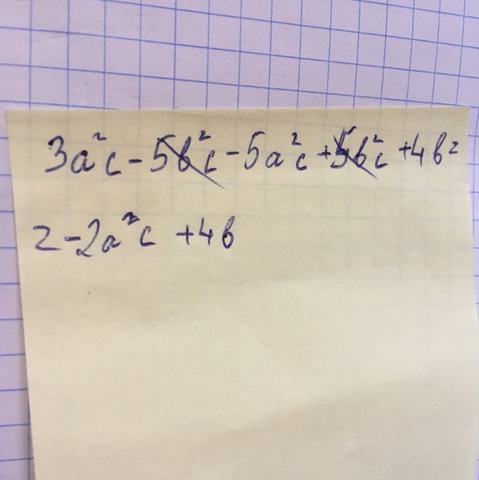 3a²c - 5b²c - 5a²c + 5b²c + 4b =
= -2a²c + 4b